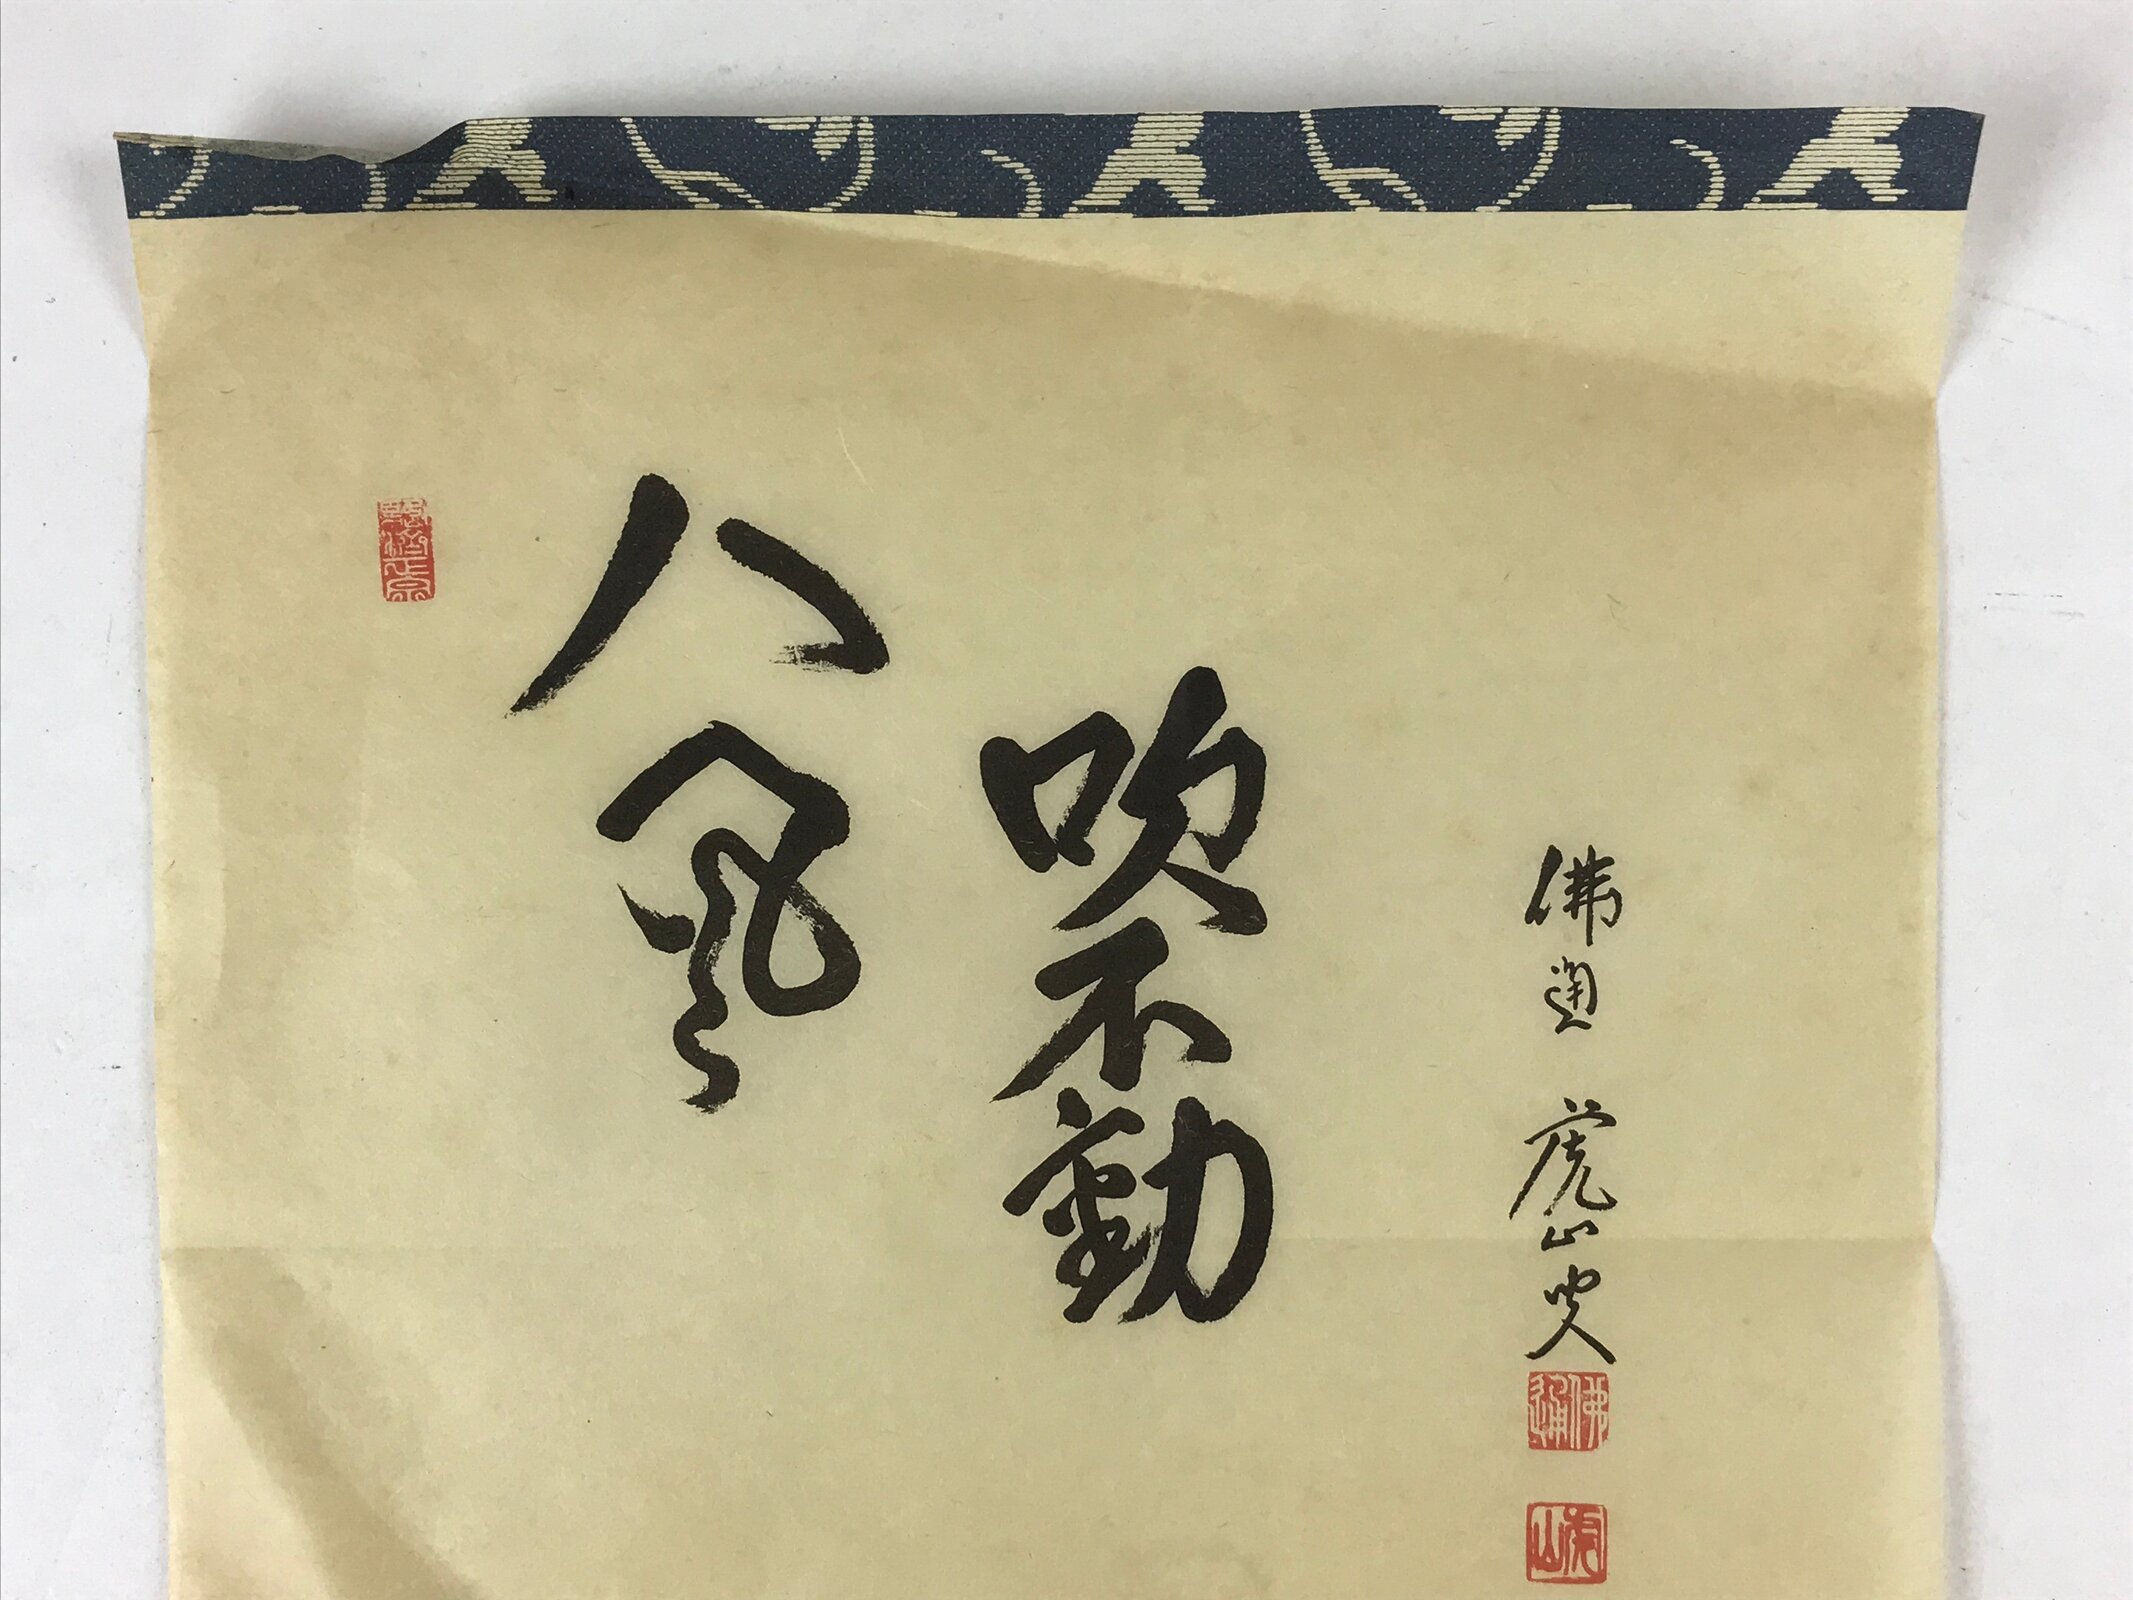 八風
吹不動
佛通 虎山叟
佛通
虎山